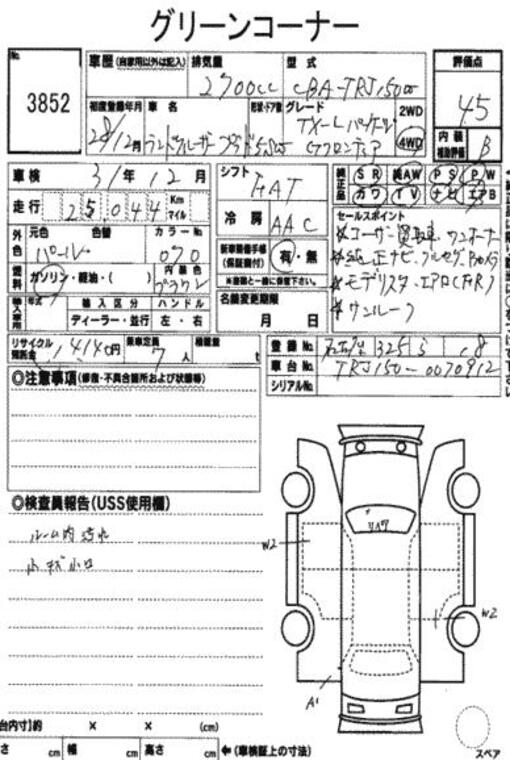 グリーンコーナー
No.
3852
車歴 (自家用以外は記入)
排気量
2700cc
型式
CBA-TRJ150W
評価点
4.5
初度登録年月
28/12月
車名
ランドクルーザープラド
形状・ドア数
5
グレード
TX-L
2WD
4WD
内装
補助評価
B
車検
31年12月
走行
25,044
Km
マイル
シフト
FAT
冷房
AAC
純正品
SR
AW
PS
PW
カワ
TV
ナビ
エアB
セールスポイント
※ユーザー買取車 ワンオーナー
※純正ナビ フルセグ
※モデリスタエアロ
※サンルーフ
外色
元色
色替
カラーNo
パール
070
燃料
ガソリン・軽油・( )
内装色
新車整備手帳
(保証書付)
有・無
※書類と一緒に保管下さい。
輸入車用
年式
輸入区分
ハンドル
ディーラー・並行
左・右
名義変更期限
月 日
リサイクル
預託金
14140円
乗車定員
7人
積載量
t
登録No.
325
車台No.
TRJ150-0070912
シリアルNo.
◎注意事項 (修復・不具合箇所および状態等)
◎検査員報告(USS使用欄)
ルーム内汚れ
小キズ小凹
リペア
W2
W2
A1
台内寸]約 × × (cm)
さ cm 幅 cm 高さ cm ←(車検証上の寸法)
スペア